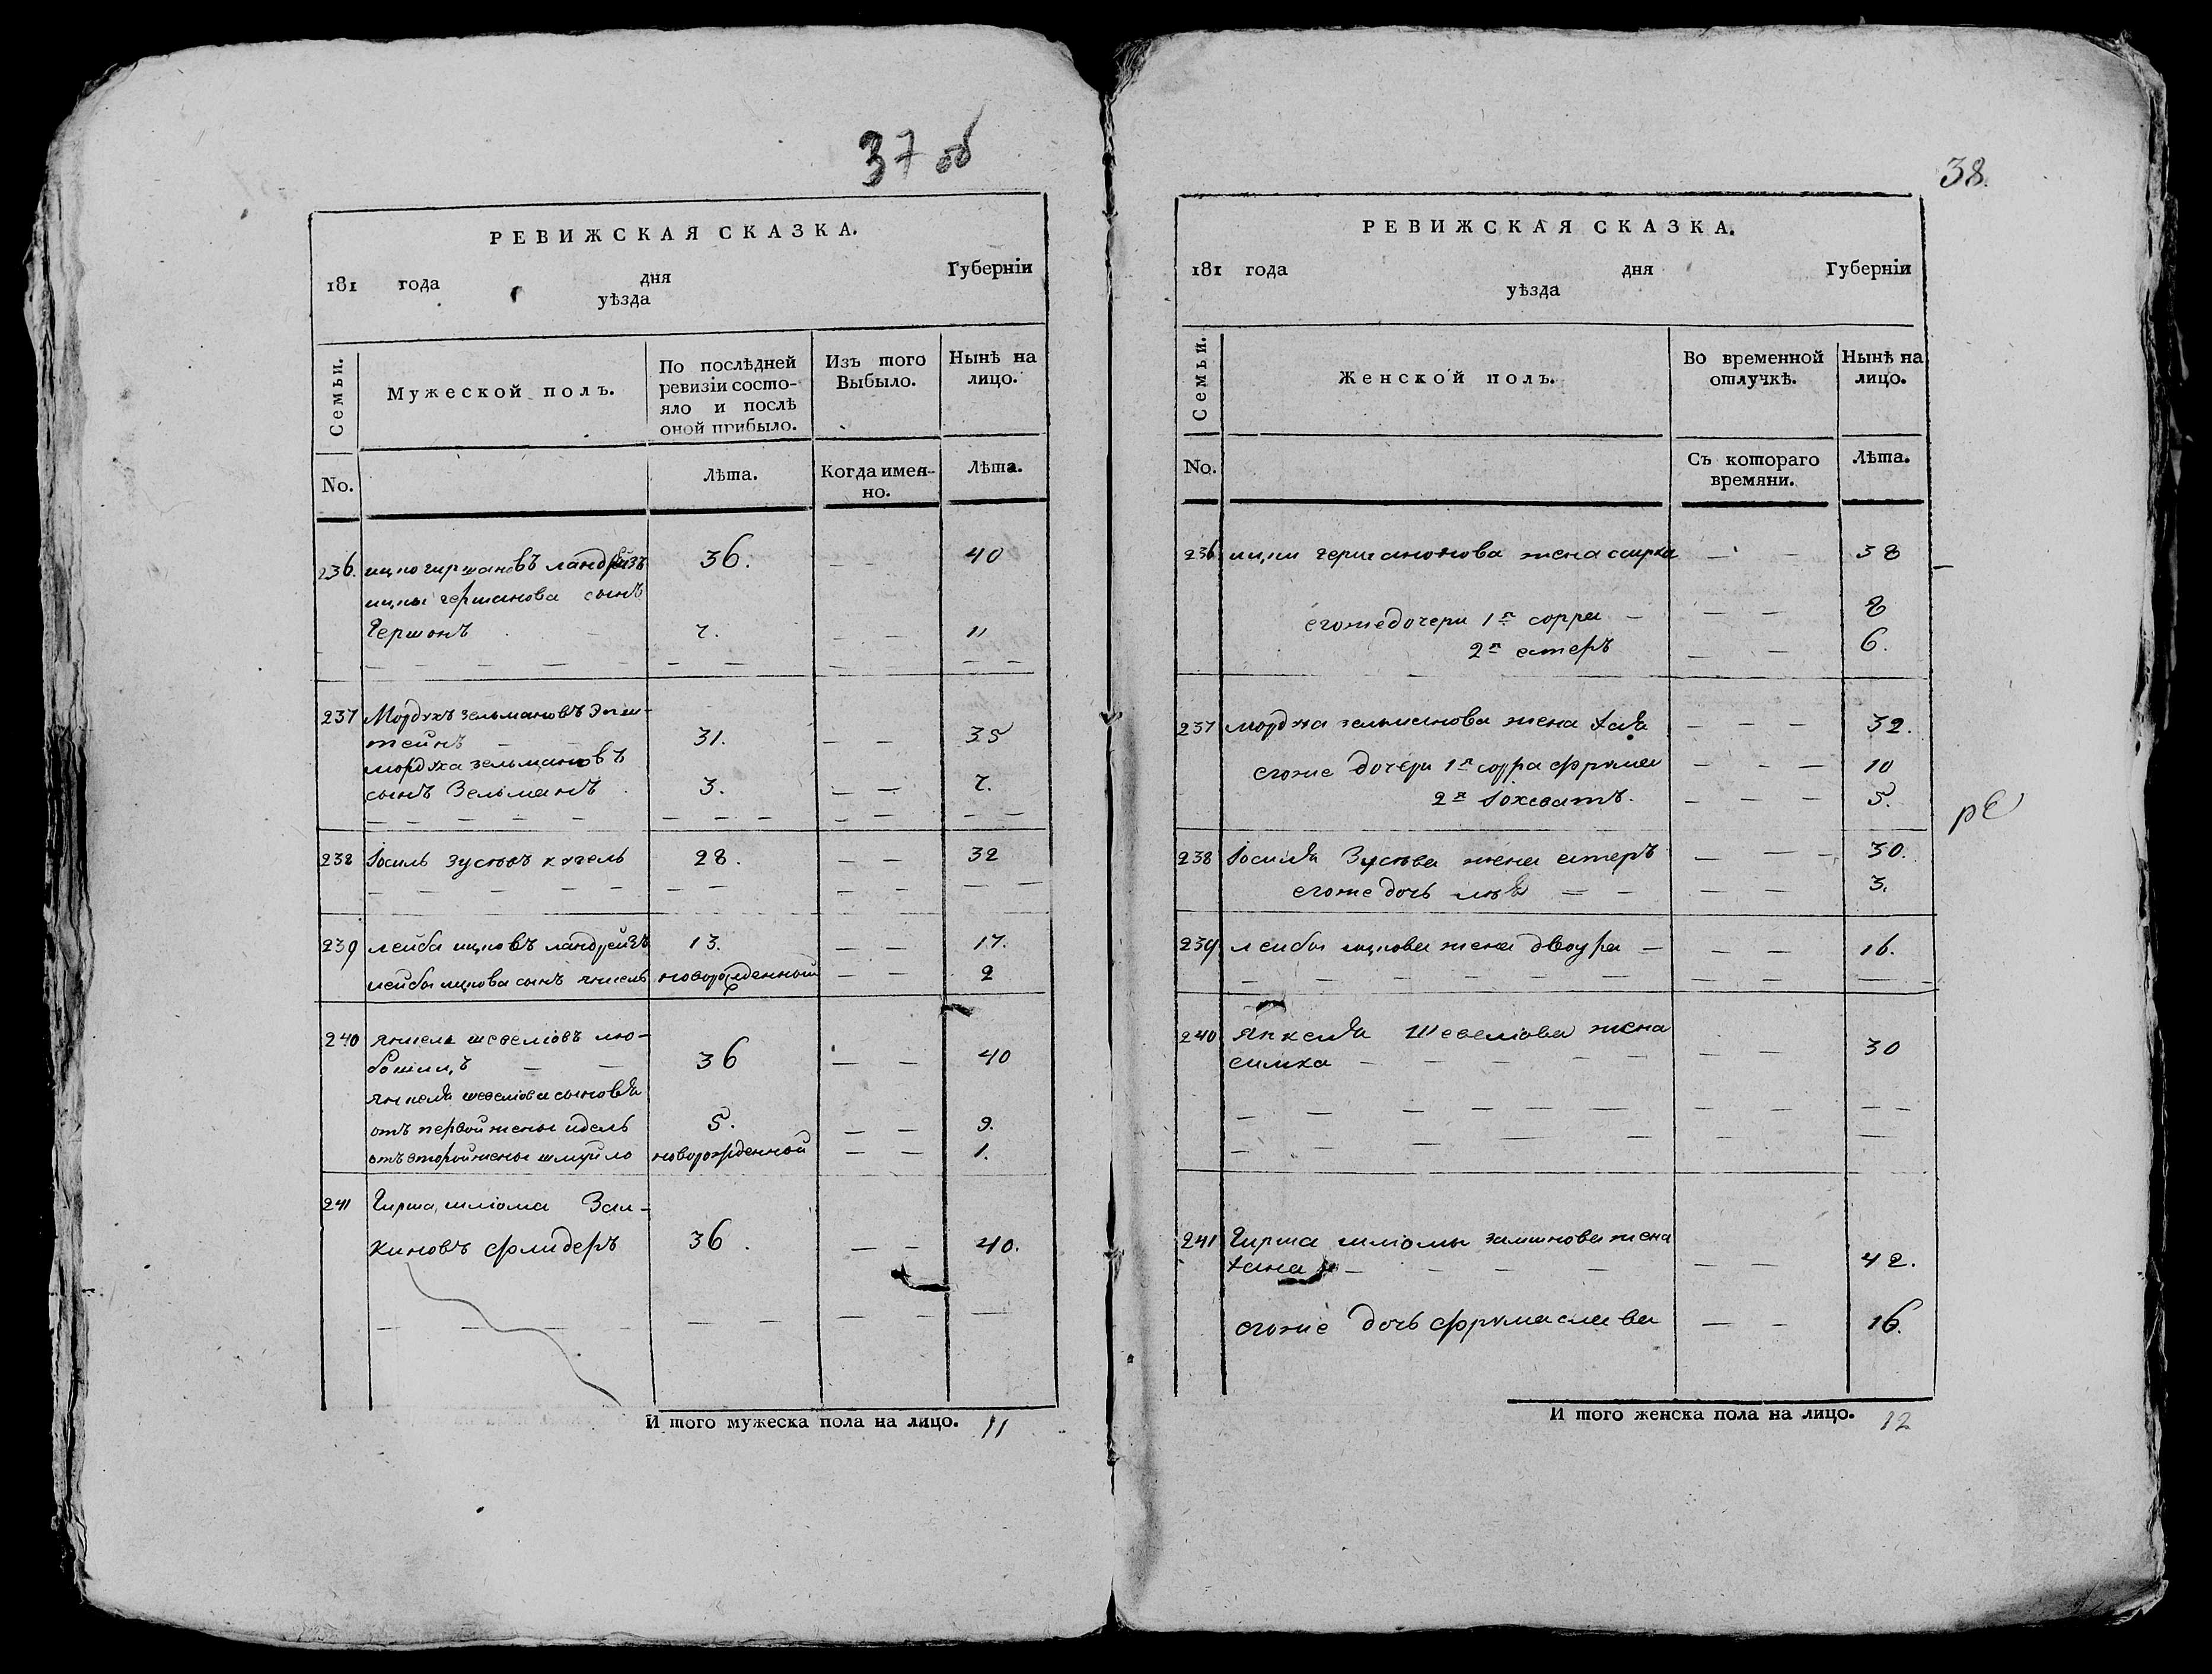 37 об
РЕВИЖСКАЯ СКАЗКА.
181 года дня Губерніи
уѣзда
Семьи. Мужеской полъ. По послѣдней ревизіи состояло и послѣ оной прибыло. Изъ того Выбыло. Нынѣ на лицо.
No. Лѣта. Когда именно. Лѣта.
236. ицко гиршановъ 36. — — 40
ицки гершанова сынъ
Гершонъ 7. — — 11
237 Мордухъ зельмановъ Эпш-
тейнъ — 31. — — 35
мордуха зельмановъ
сынъ Зельманъ 3. — — 7.
238 Іосиль зусювъ кугель 28. — — 32
239 лейба ицковъ ландрейзъ 13. — — 17.
лейбы ицкова сынъ янкель новорожденной — — 2
240 янкель шевеліовъ лю-
бошицъ — — 36 — — 40
янкеля шевеліова сыновья
отъ первой жены идель 5. — — 9.
отъ второй жены шмуйло новорожденной — — 1.
241 Гирша шліома Зал-
киновъ флидеръ 36. — — 40.
И того мужеска пола на лицо. 11
38.
РЕВИЖСКАЯ СКАЗКА.
181 года дня Губерніи
уѣзда
Семьи. Женской полъ. Во временной отлучкѣ. Нынѣ на лицо.
No. Съ котораго времяни. Лѣта.
236 ицки жена сирка — — 38
егоже дочери 1я сорра — — — 8
2я естеръ — — 6.
237 мордуха зельманова жена хая — — — 32.
егоже дочери 1я сорра фрума — — — 10
2я Іохеватъ. — — — 5.
238 Іосиля Зусева жена естеръ — — — 30.
егоже дочь — — — — 3.
239 лейбы ицкова жена двоура — — — 16.
240 янкеля Шевеліова жена
симка — — — 30
241 Гирша шліомы залкинова жена
хана — — — — 42.
егоже дочь фрума слава — — 16.
И того женска пола на лицо. 12